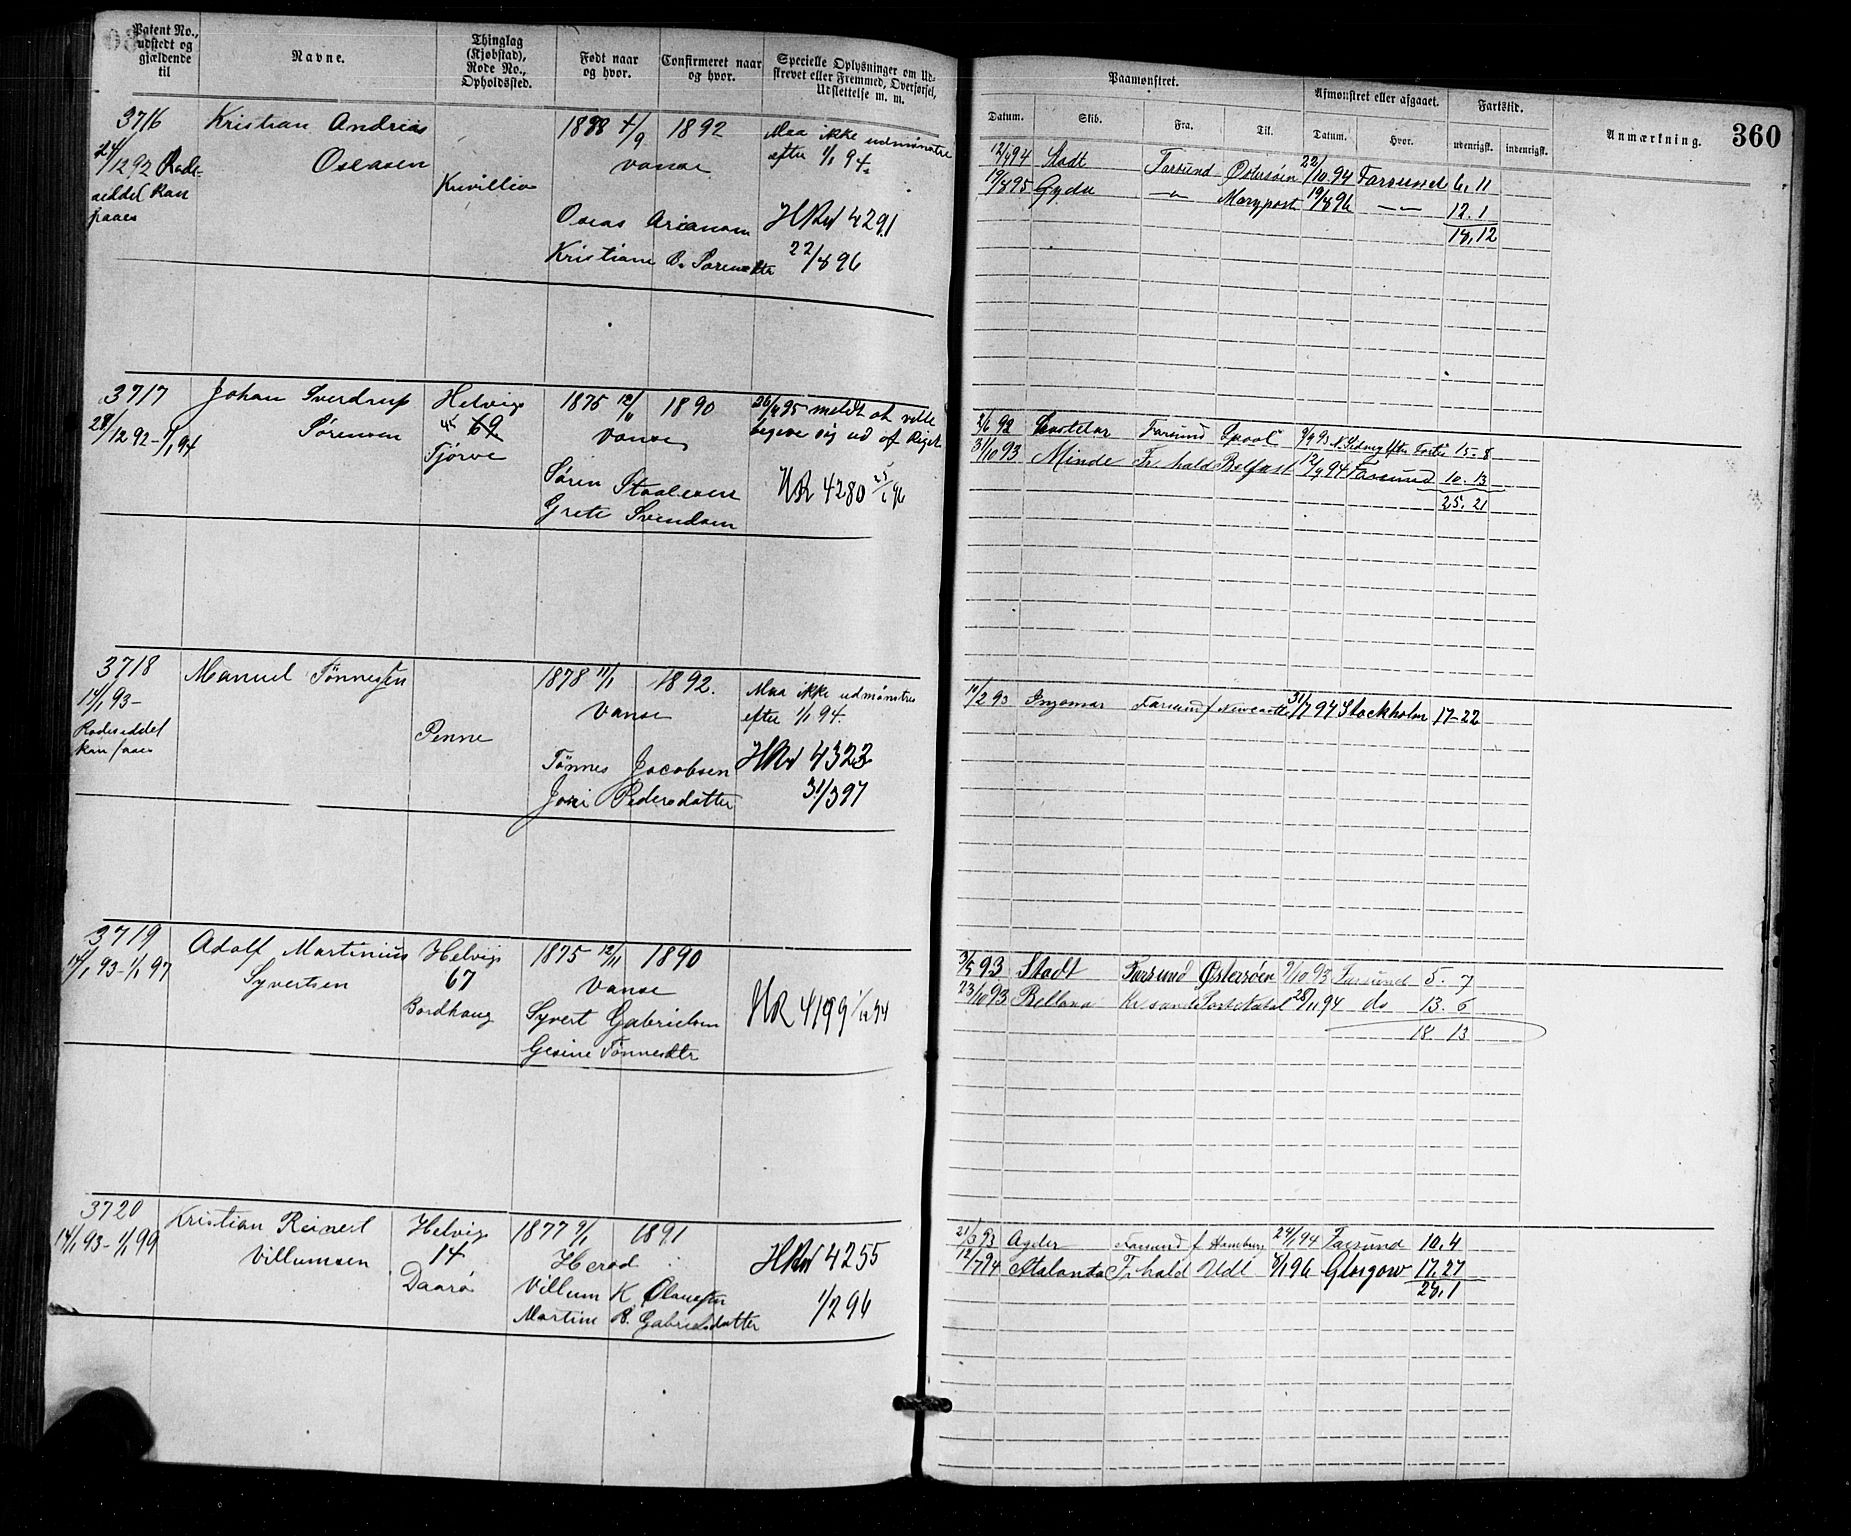 Patent No., udstedt og gjældende til
Navne.
Thinglag (Kjøbstad), Rode No., Opholdssted.
Født naar og hvor.
Confirmeret naar og hvor.
Specielle Oplysninger om Udskrevet eller Fremmed, Overførsel, Udslettelse m. m.
Paamønstret.
Datum. Skib. Fra. Til.
Afmønstret eller afgaaet.
Datum. Hvor.
Fartstid.
udenrigsk. indenrigsk.
Anmærkning.
360
3716 Kristian Andreas 1892
Oseasen Vanse
Maa ikke udmønstre
efter 1/1 94.
24/12 92 Rode-
seddel kan
Oseas
Kristiane B. Sørensdtr
HRul 4291
22/8 96
12/4 94 Stadt Farsund Østersøen 22/10 94 Farsund 6. 11
19/8 95 Gyda Maryport 19/8 96 12. 1
18. 12
3717 Johan Sverdrup Helvig 1875 12/11 1890
Sørensen 45 69 Vanse
28/12 92 - 1/1 94 Tjørve
26/4 95 meldt at ville
begive sig ud af Riget
Søren Staalesen
Grete Svendsen
HR 4280
2/6 92 Farsund 15. 8
31/10 93 Minde Fr.hald Belfast 12/9 94 Farsund 10. 13
25. 21
3718 Manuel Tønnessen 1878 11/1 1892.
Vanse
14/1 93 -
Rodeseddel
kan
Penne
Maa ikke udmønstres
efter 1/1 94.
Tønnes Jacobsen
Pedersdatter
HRul 4323
31/3 97
11/2 93 Ingomar Farsund f Newcastle 31/7 94 Stockholm 17-22
3719 Adolf Martinius Helvig 1875 12/11 1890
14/1 93 - 1/1 97 Syvertsen 67 Vanse
Bordhaug
Syvert Gabrielsen
Gesine Tønnesdtr
HR 4199 1/12 94
3/5 93 Stadt Farsund Østersøen 9/10 93 Farsund 5. 7
23/10 93 Bellona Kr.sand Port Natal 28/11 94 do 13. 6
18. 13
3720 Kristian Reinert Helvig 1877 9/1 1891
14/1 93 - 1/1 99 Villumsen 14 Herad
Daarø
Villum K. Olaussen
Martine B. Gabrielsdatter
HRul 4255
1/2 96
21/3 93 Agder Farsund f Hamburg 24/1 94 Farsund 10. 4
12/7 94 Atalanta Fr.hald Udl 8/1 96 Glasgow 17. 27
28. 1